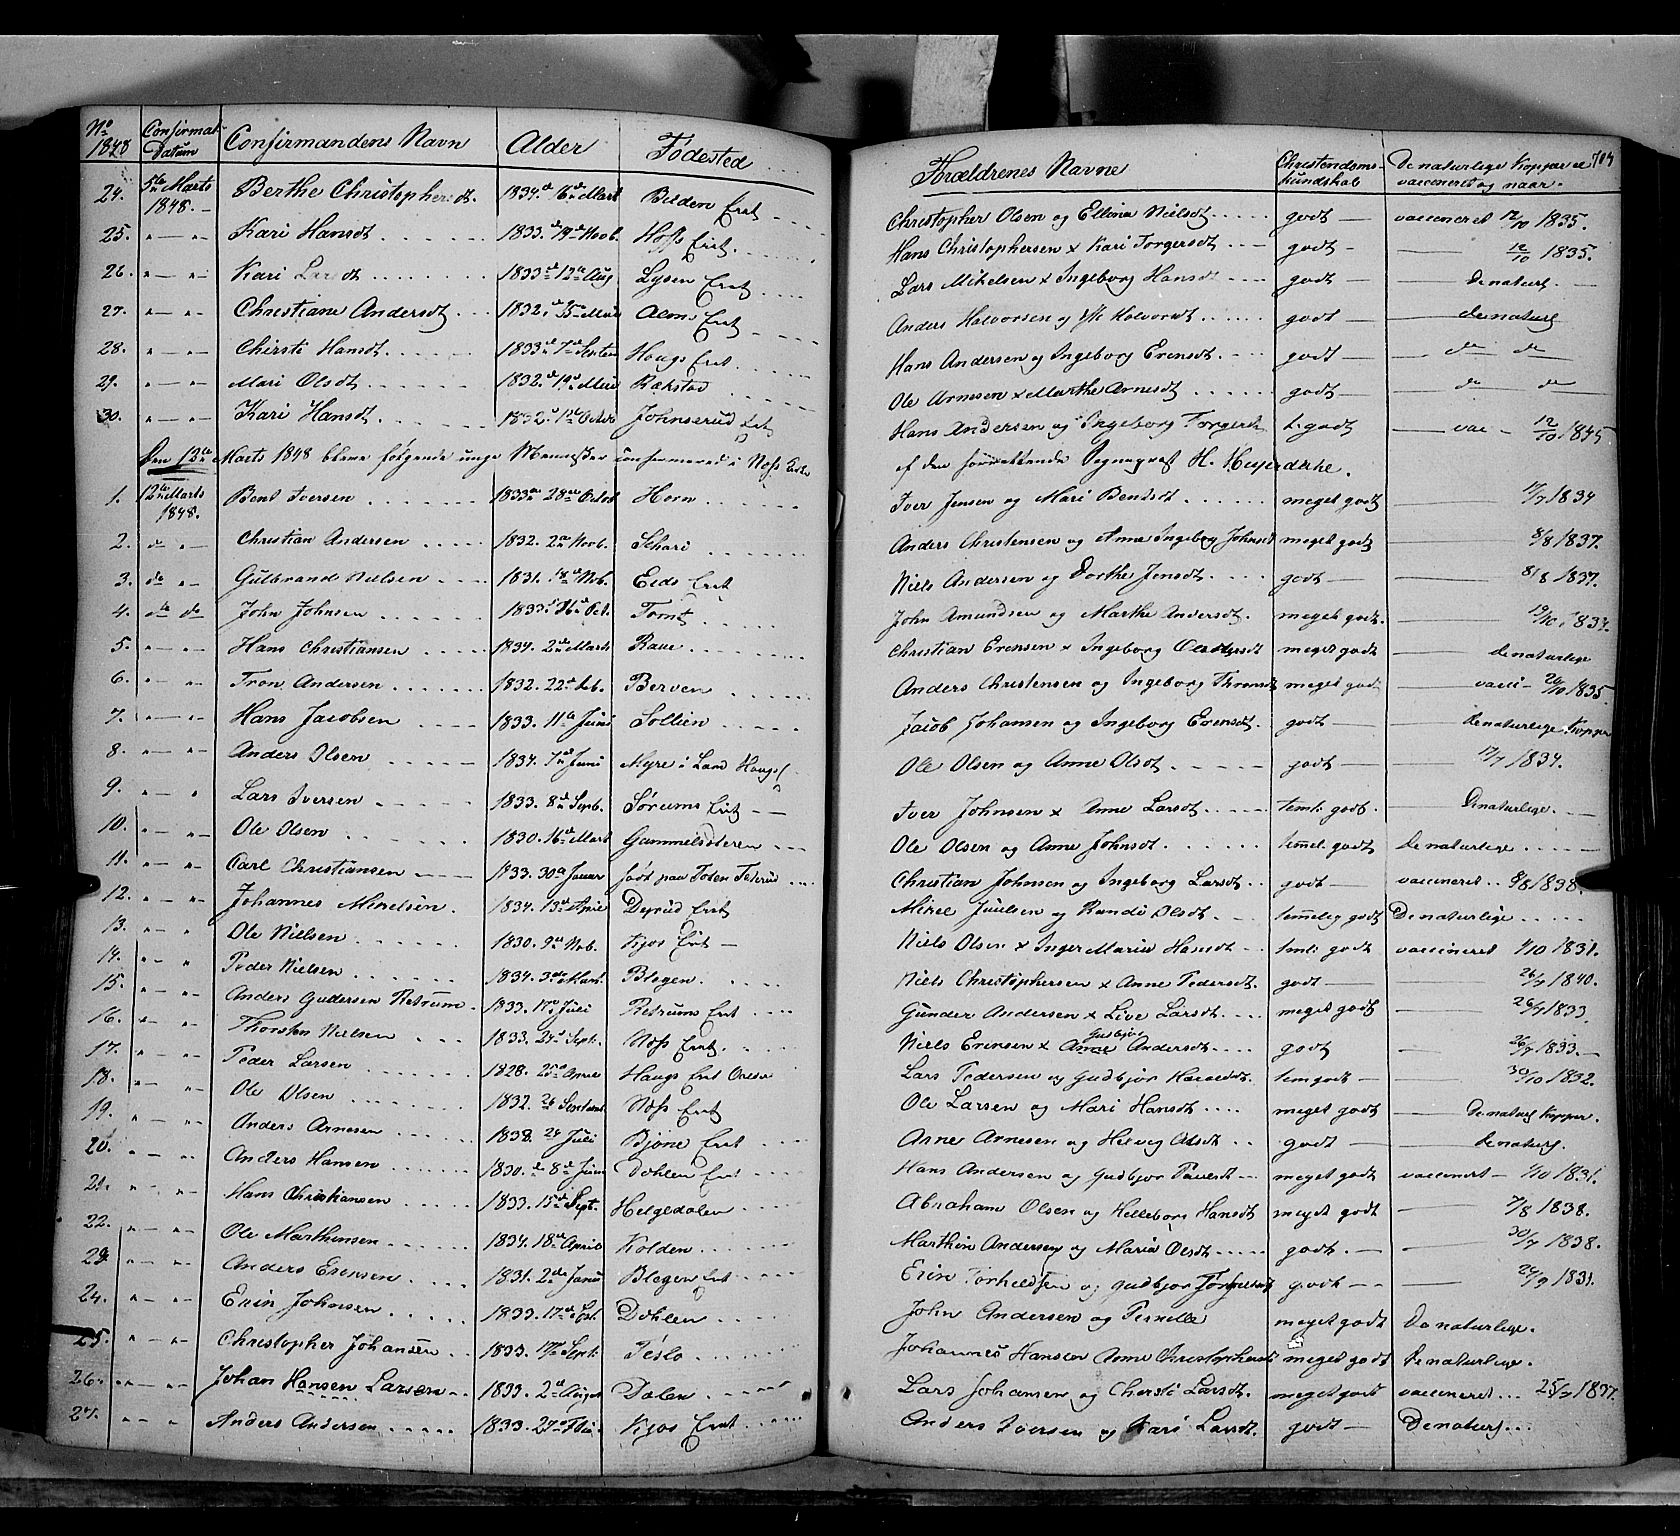 No 1848 Confirmat. Datum Confirmandens Navn Alder Fødested
24. 5te Marts 1848. Berthe Christophersdt. 1834 d. 16 Mart Bilden Eiet
25. Kari Hansdt 1833 d. 19 Novb. Hofs Eiet
26. Kari Larsdt 1833 d. 12te Aug Lysen Eiet
27. Christiane Andersdt 1832 Alm Eiet
28. Chirsti Hansdt 1833 7 Septem Haugs Eiet
29. Mari Olsdt 1832 d. 19 Røkstad
30. Kari Hansdt 1832 Octobr Johnserud Eiet
Den 12te Marts 1848 bleve følgende unge Mennesker confirmered i Nøss Kirke
1. 12te Marts 1848. Bent Iversen 1833 28 Octob Horn
2. do Christian Andersen 1832. 2 Novb. Schari
3. do Gulbrand Nielsen 1831. 18 Nvb. Eids Eiet
4. do do John Johnsen 1833 16 Oct. Tomt
5. Hans Christiansen 1834. 2 Marts Raue
6. Tron Andersen 1832. 22 Feb. Berven
7. Hans Jacobsen 1833. 11te Juni Sollien
8. Anders Olsen 1834. 7 Juni Myre i Land
9. Lars Iversen 1833. 8 Septb. Sørums Eiet
10. Ole Olsen 1830. 16 Mart Gammelsæteren
11. Carl Christiansen 1833. 30 Januar født paa Toten
12. Johannes Mikelsen. 1834. 13 April Deyrud Eiet
13. Ole Nielsen 1830. 9 Nvb. Kjos Eiet
14. Peder Nielsen 1834. 3die Mart Blegen.
15. Anders Gudersen Retrum 1833. 17 Juli Retrums Eiet
16. Thorsten Nielsen 1833. Sept. Nøss Eiet.
17. Peder Larsen 1828. 25 April Haugs Eiet
18. Ole Olsen 1832. 26 Septemb Nøss Eiet
19. Anders Arnesen 1838. 24 Juli Bjone Eiet
20. Anders Hansen 1830. 8 Juni Dohlen Eiet
21. Hans Christiansen 1833. 15 Sept. Helgedalen
22. Ole Marthinsen 1834. 18 April Kolden
23. Anders Erensen 1831. 2den Janu Blegen Eiet
24. Erik Johnsen 1833. 17 Sept. Dohlen
25. Christopher Johansen 1833. Sept. Teslo
26. Johan Hansen Larsen 1833. 2 August Dalen
27. Anders Andersen 1833. 27 Kjos Eiet
Forældrenes Navne Christendoms-kundskab De naturlige Kopper el vaccineret og naar. 704
Christopher Olsen og Ellina Nielsdt godt vaccineret 12/10 1835.
Hans Christophersen x Kari Torgersdt godt 12/10 1835.
Lars Mikelsen x Ingeborg Hansdt godt De naturl.
Anders Halvorsen og Halvorsdt godt de naturlg
Hans Andersen og Ingeborg Erensdt. godt do do
Ole Arnesen x Marthe Arnesdt godt do do
Hans Andersen og Ingeborg Torgersdt t. godt vac 12/10 1845
af den forrettende Sognepræst H. Heyerdahl.
Iver Jensen og Mari Bendsdt meget godt 17/7 1834
Anders Christensen og Anne Ingeborg Johnsdt meget godt 8/8 1837.
Niels Andersen og Dorthe Jensdt godt 8/8 1837.
John Amundsen og Marthe Andersdt. meget godt. 19/10 1834.
Christian Erensen x Ingeborg meget godt de naturlige
Anders Christensen og Ingeborg Thronsdt meget godt vacci 1835
Jacob Johansen og Ingeborg Erensdt. godt de naturlige Kopper
Ole Olsen og Anne Olsdt godt 17/7 1834.
Iver Johnsen x Anne Larsdt temli. godt. De naturlige.
Ole Olsen og Anne Johnsdt temml. godt De naturlige
Christian Johnsen og Ingeborg Larsdt godt vaccineret 8/8 1838.
Mikel Juulsen og Randi Olsdt temmelig godt De naturlige
Niels Olsen x Inger Maria Hansdt temli godt vaccineret 1/10 1831.
Niels Christophersen x Anne Pedersdt. godt 26/7 1840.
Gunder Andersen x Live Larsdt. meget godt 26/7 1833.
Niels Erensen x Gudbjør Andersdt. godt 26/7 1833.
Lars Pedersen og Gudbjør temgodt 30/10 1832.
Ole Larsen og Mari Hansdt meget godt De naturlg Kopper.
Arne Arnesen og Helvig Olsdt godt de naturlg.
Hans Andersen og Gudbjør Paulsdt meget godt vaccineret 1/10 1831.
Abraham Olsen og Helleborg Hansdt meget godt 7/8 1838.
Marthin Andersen og Maria Olsdt. godt. 30/7 1838.
Erik og Gudbjør godt 1831.
John Andersen og Pernille meget godt De naturlige.
Johannes Hansen Anne Christophersdt meget godt De naturlige.
Lars Johansen og Chersti Larsdt. meget godt vaccineret 25/7 1837.
Anders Iversen og Kari Larsdt. godt De naturlg